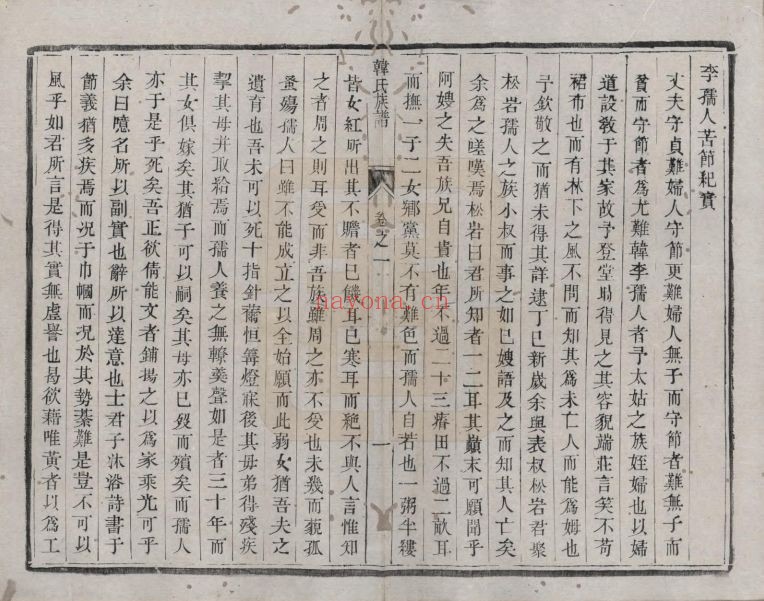 李孺人苦節紀實
丈夫守貞難婦人守節更難婦人無子而守節者難無子而
貧而守節者為尤難韓李孺人者予太姑之族姪婦也以婦
道設教于其家故予登堂時得見之其容貌端莊言笑不苟
裙布也而有林下之風不問而知其為未亡人而能為姆也
予欽敬之而猶未得其詳逮丁巳新歲余與表叔松岩君聚
松岩孺人之族小叔而事之如己嫂語及之而知其人亡矣
余為之嗟嘆焉松岩曰君所知者一二耳其巔末可願聞乎
阿嫂之失吾族兄自貴也年不過二十三瘠田不過二畝耳
而撫一子二女鄉黨莫不有難色而孺人自若也一粥半縷
韓氏族譜
卷之一
一
皆女紅所出其不贍者已饑耳已寒耳而絕不與人言惟知
之者周之則耳受而非吾族雖周之亦不受也未幾而藐孤
蚤殤孺人曰雖不能成立之以全始願而此弱女猶吾夫之
遺育也吾未可以死十指針黹恒篝燈寐後其母弟得殘疾
挈其母并取給焉而孺人養之無轑羹聲如是者三十年而
其女俱嫁矣其猶子可以嗣矣其母亦已歿而殯矣而孺人
亦于是乎死矣吾正欲倩能文者鋪揚之以為家乘光可乎
余曰噫名所以副實也辭所以達意也士君子沐浴詩書于
節義猶多疾焉而況于巾幗而況於其勢綦難是豈不可以
風乎如君所言是得其實無虛譽也曷欲藉唯黃者以為工
nayona.cn